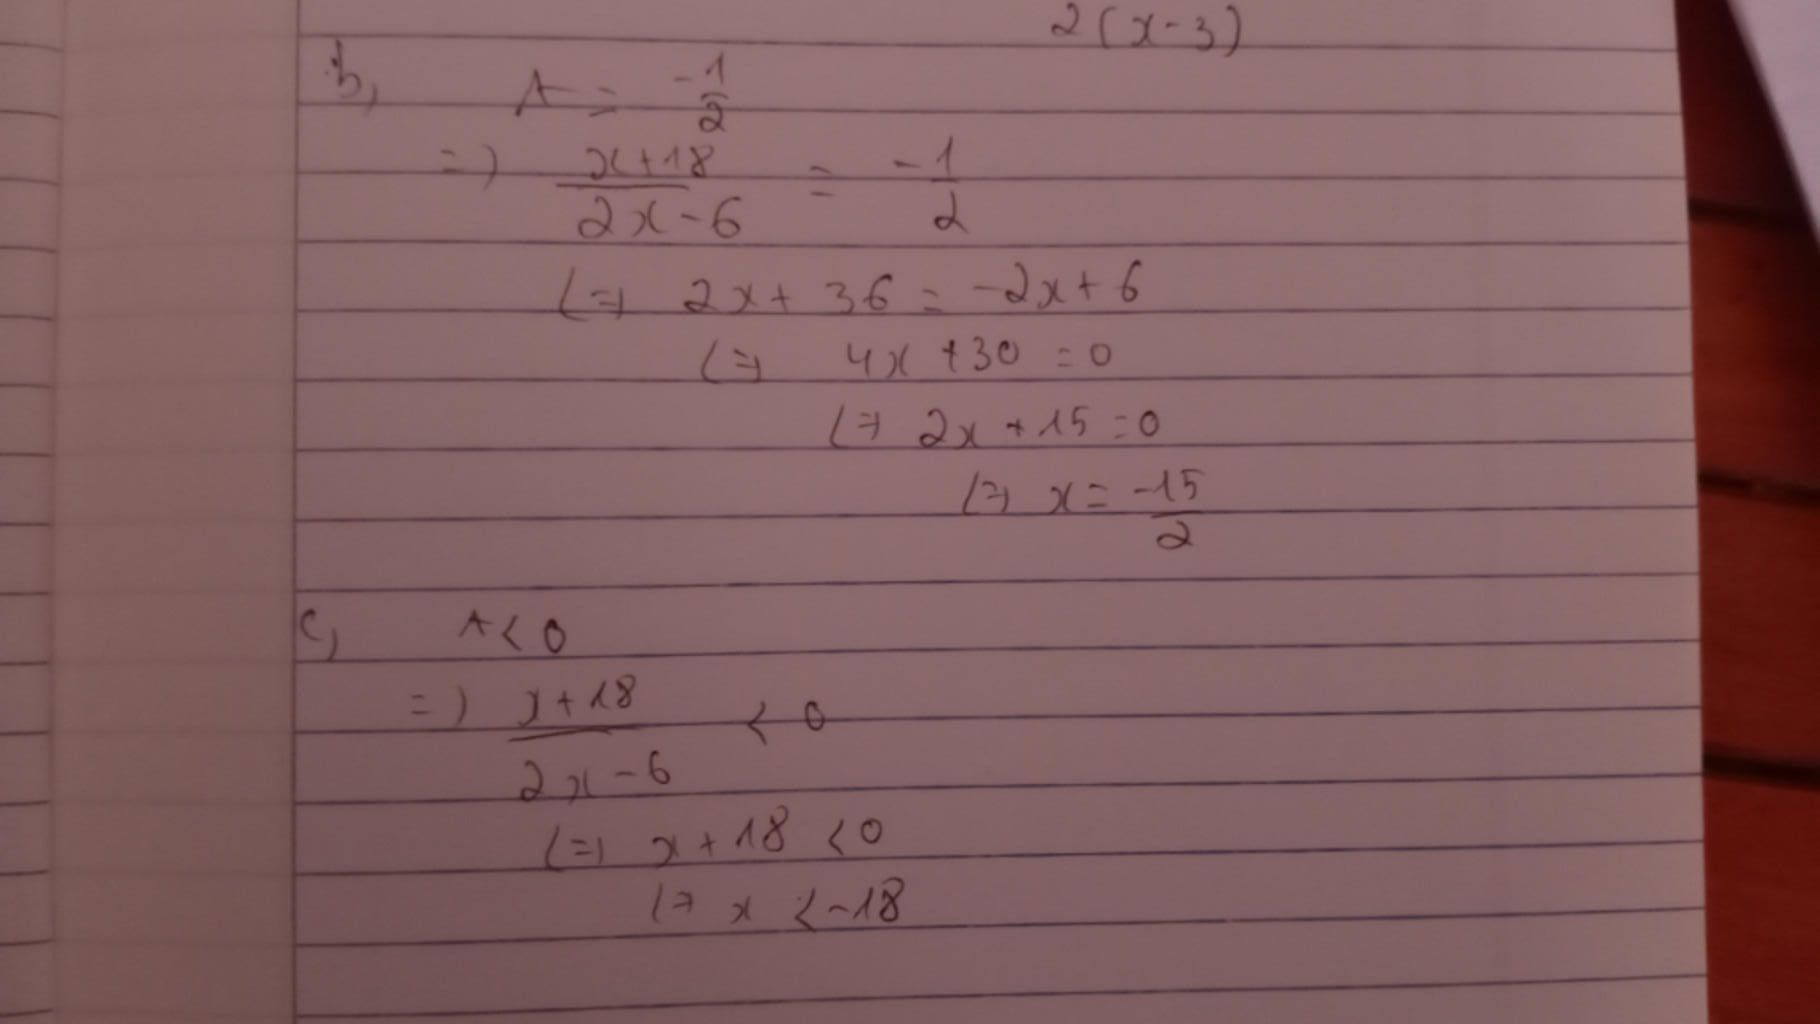 2(x-3)
b, A = -1/2
=) x+18/2x-6 = -1/2
(=) 2x + 36 = -2x + 6
(=) 4x + 30 = 0
(=) 2x + 15 = 0
(=) x = -15/2
c, A < 0
=) x+18/2x-6 < 0
(=) x + 18 < 0
(=) x < -18